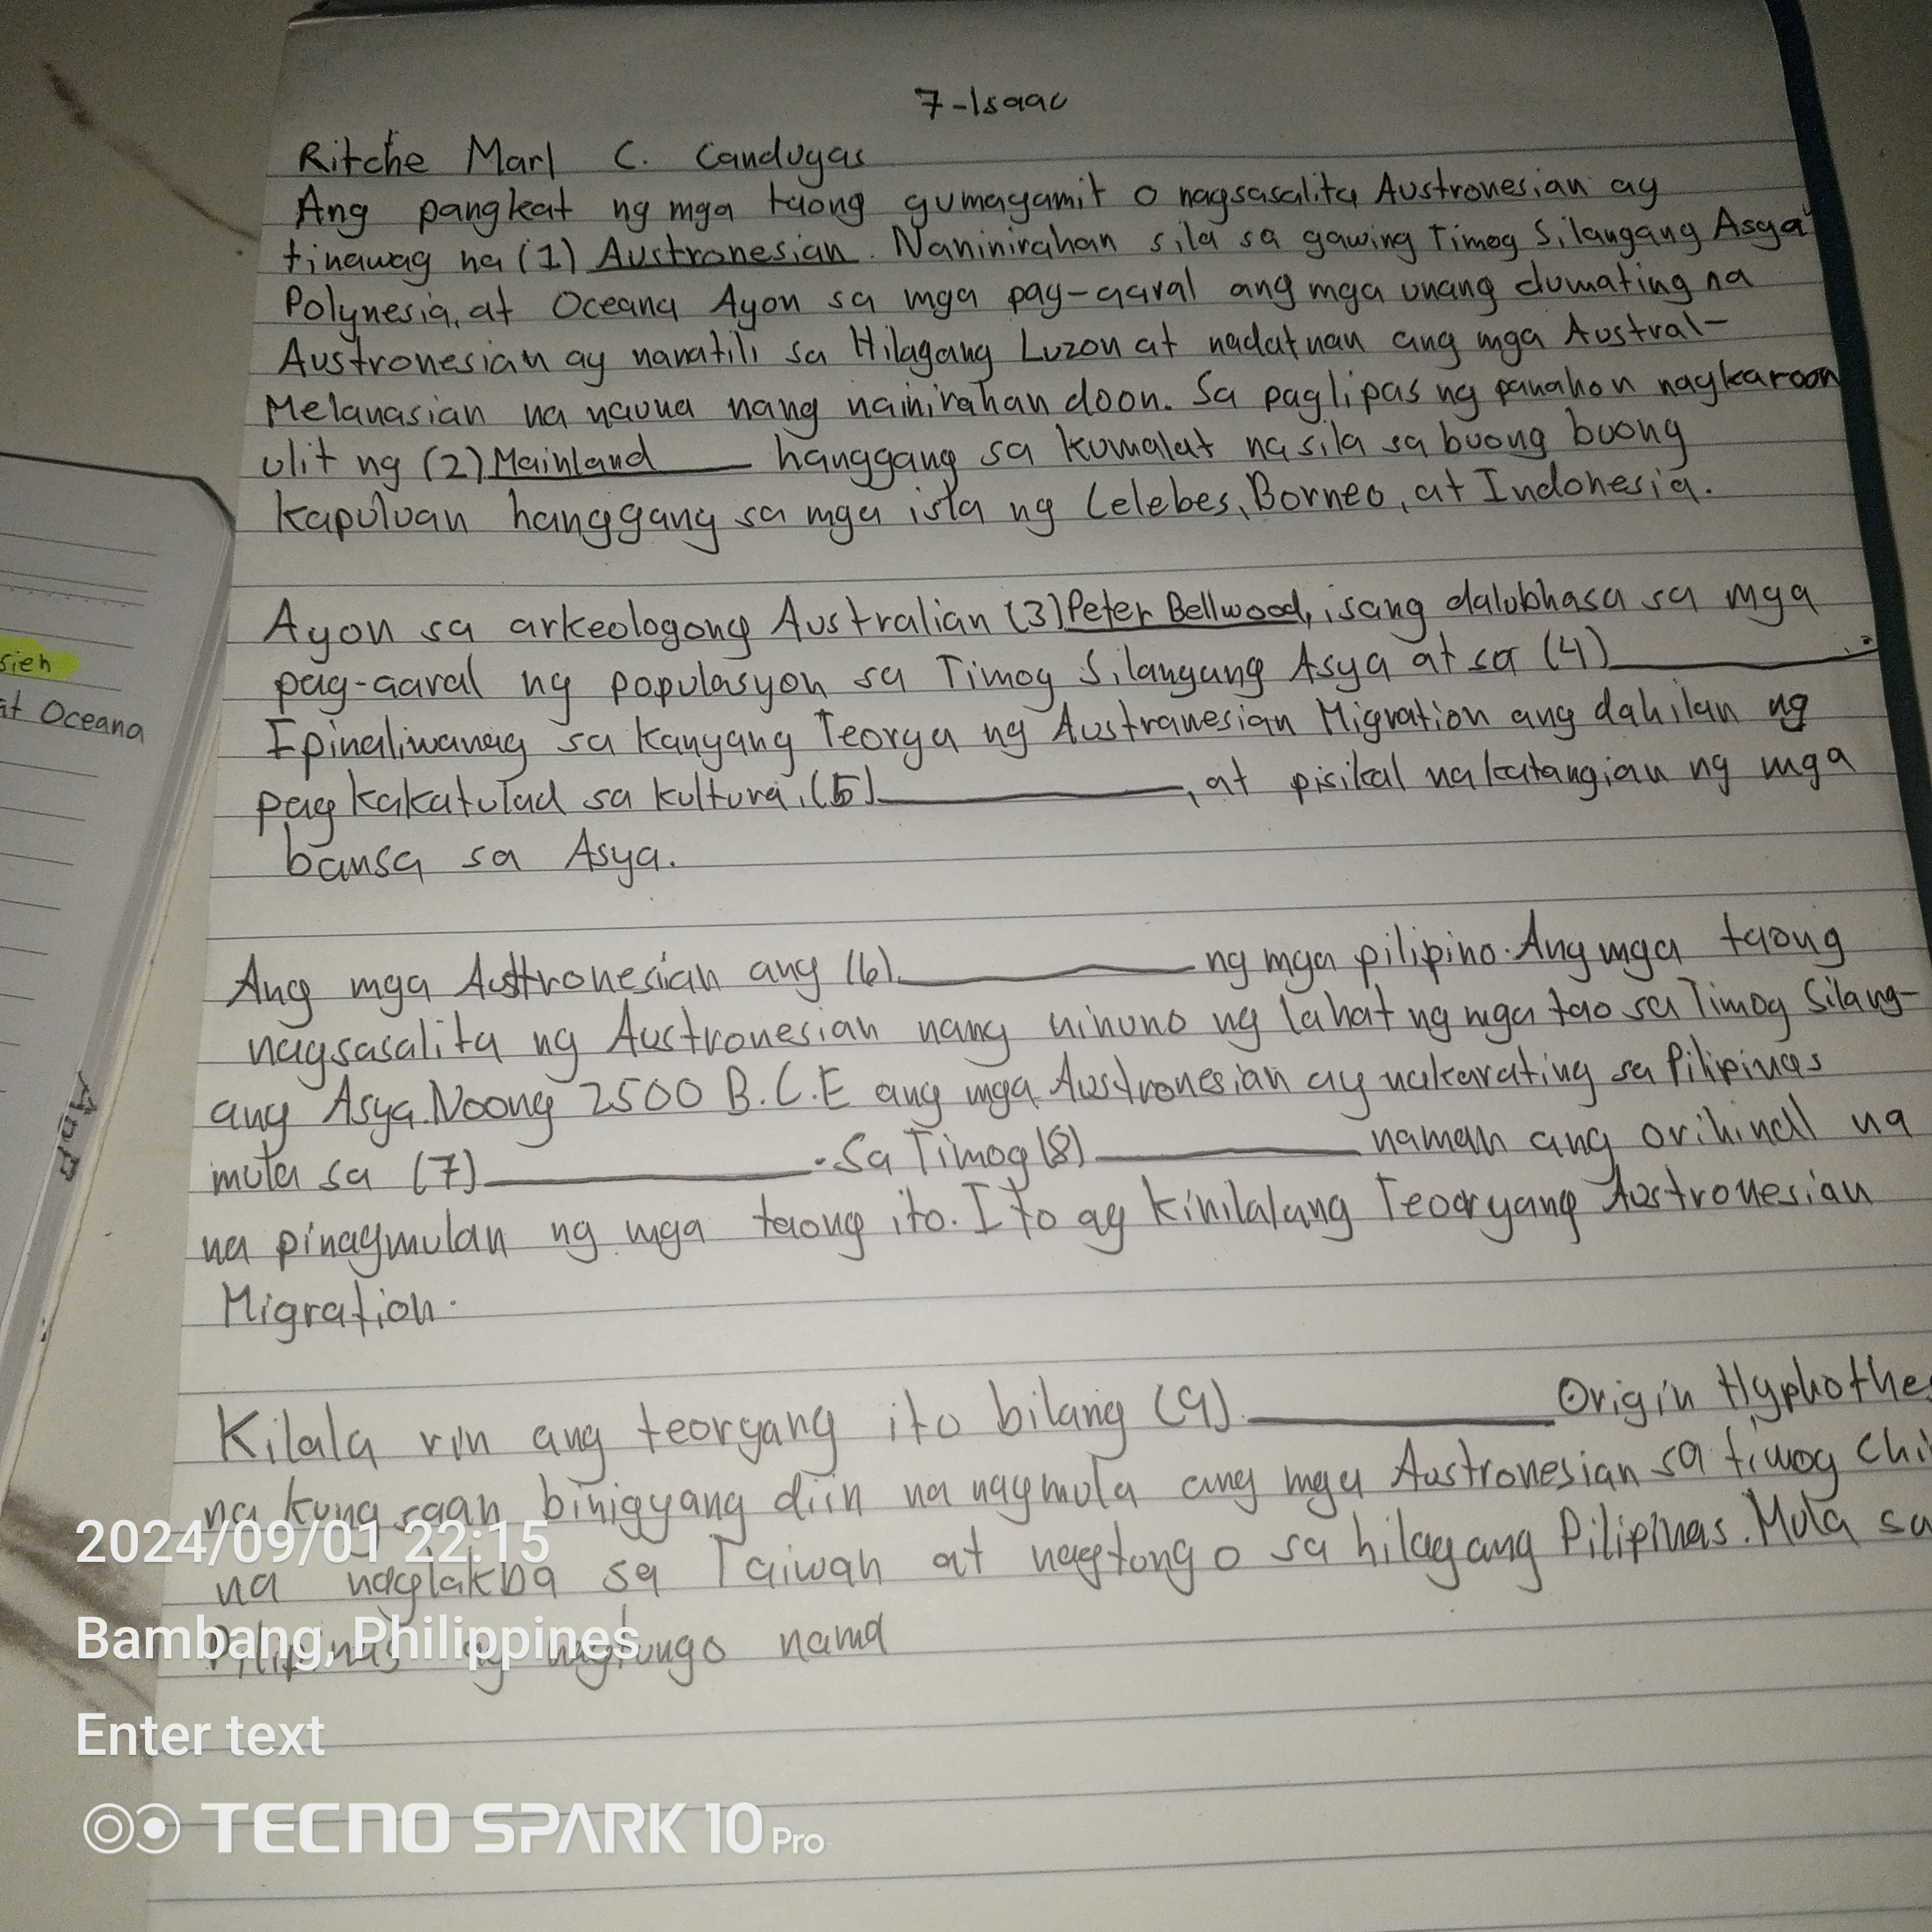 7-Isaac
Ritche Marl C. Candugas
Ang pangkat ng mga taong gumagamit o nagsasalita Austronesian ay
tinawag na (1) Austronesian. Naninirahan sila sa gawing Timog Silangang Asya
Polynesia, at Oceana Ayon sa mga pag-aaral ang mga unang dumating na
Austronesian ay nanatili sa Hilagang Luzon at nadatnan ang mga Austral-
Melanasian na nauna nang nainirahan doon. Sa paglipas ng panahon nagkaroon
ulit ng (2) Mainland____ hanggang sa kumalat na sila sa buong buong
kapuluan hanggang sa mga isla ng Celebes, Borneo, at Indonesia.
Ayon sa arkeologong Australian (3) Peter Bellwood, isang dalubhasa sa mga
pag-aaral ng populasyon sa Timog Silangang Asya at sa (4)__________.
Ipinaliwanag sa kanyang Teorya ng Austranesian Migration ang dahilan ng
pagkakatulad sa kultura, (5)__________, at pisikal na katangian ng mga
bansa sa Asya.
Ang mga Austtronesian ang (6)__________ ng mga pilipino. Ang mga taong
nagsasalita ng Austronesian nang ninuno ng lahat ng mga tao sa Timog Silang-
ang Asya. Noong 2500 B.C.E ang mga Austronesian ay nakarating sa Pilipinas
mula sa (7)__________. Sa Timog (8)__________ naman ang orihinall na
na pinagmulan ng mga taong ito. Ito ay kinilalang Teoaryang Austronesian
Migration.
Kilala rin ang teoryang ito bilang (9)__________ Origin Hyphothe
na kung saan binigyang diin na nagmula ang mga Austronesian sa timog Chi
na naglakba sa Taiwan at nagtongo sa hilagang Pilipinas. Mula sa
Pilipinas ay nagtungo nama
sieh
at Oceana
App
2024/09/01 22:15
Bambang, Philippines
Enter text
TECNO SPARK 10 Pro